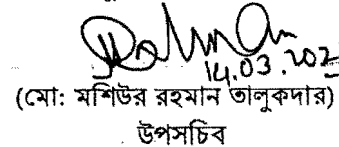 14.03.202
(মো: মশিউর রহমান তালুকদার)
উপসচিব